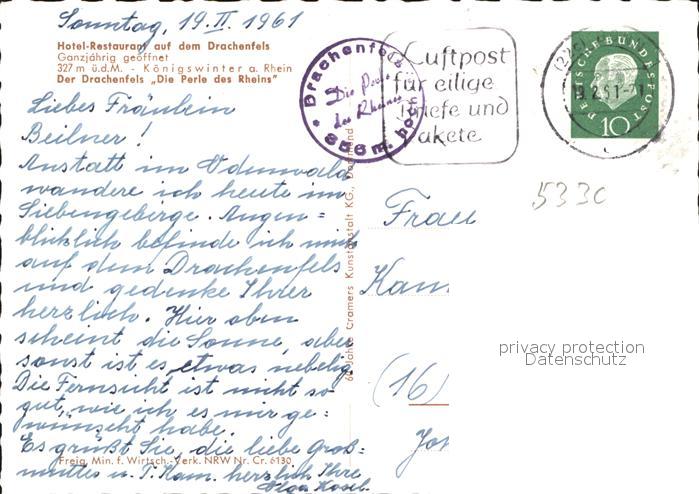 Sonntag, 19. II. 1961
Hotel-Restaurant auf dem Drachenfels
Ganzjährig geöffnet
327 m ü.d.M. - Königswinter a. Rhein
Der Drachenfels „Die Perle des Rheins"
Liebes Fräulein
Beilner!
Anstatt im Odenwald
wandere ich heute im
Siebengebirge. Augen=
blicklich befinde ich mich
auf dem Drachenfels
und gedenke Ihrer
herzlich. Hier oben
scheint die Sonne, aber
sonst ist es etwas nebelig.
Die Fernsicht ist nicht so
gut, wie ich es mir ge=
wünscht habe.
Es grüßt Sie, die liebe Groß=
mutter u. T. Kam. herzlich Ihre
Olga
Freig. Min. f. Wirtsch. Verk. NRW Nr. Cr. 6130
Jahre Cramers Kunstanstalt KG., Dortmund
Drachenfels
Die Perle
des Rheines
m. hoch
Luftpost
für eilige
Briefe und
Pakete
DEUTSCHE BUNDESPOST
10
5330
Frau
(16)
privacy protection
Datenschutz